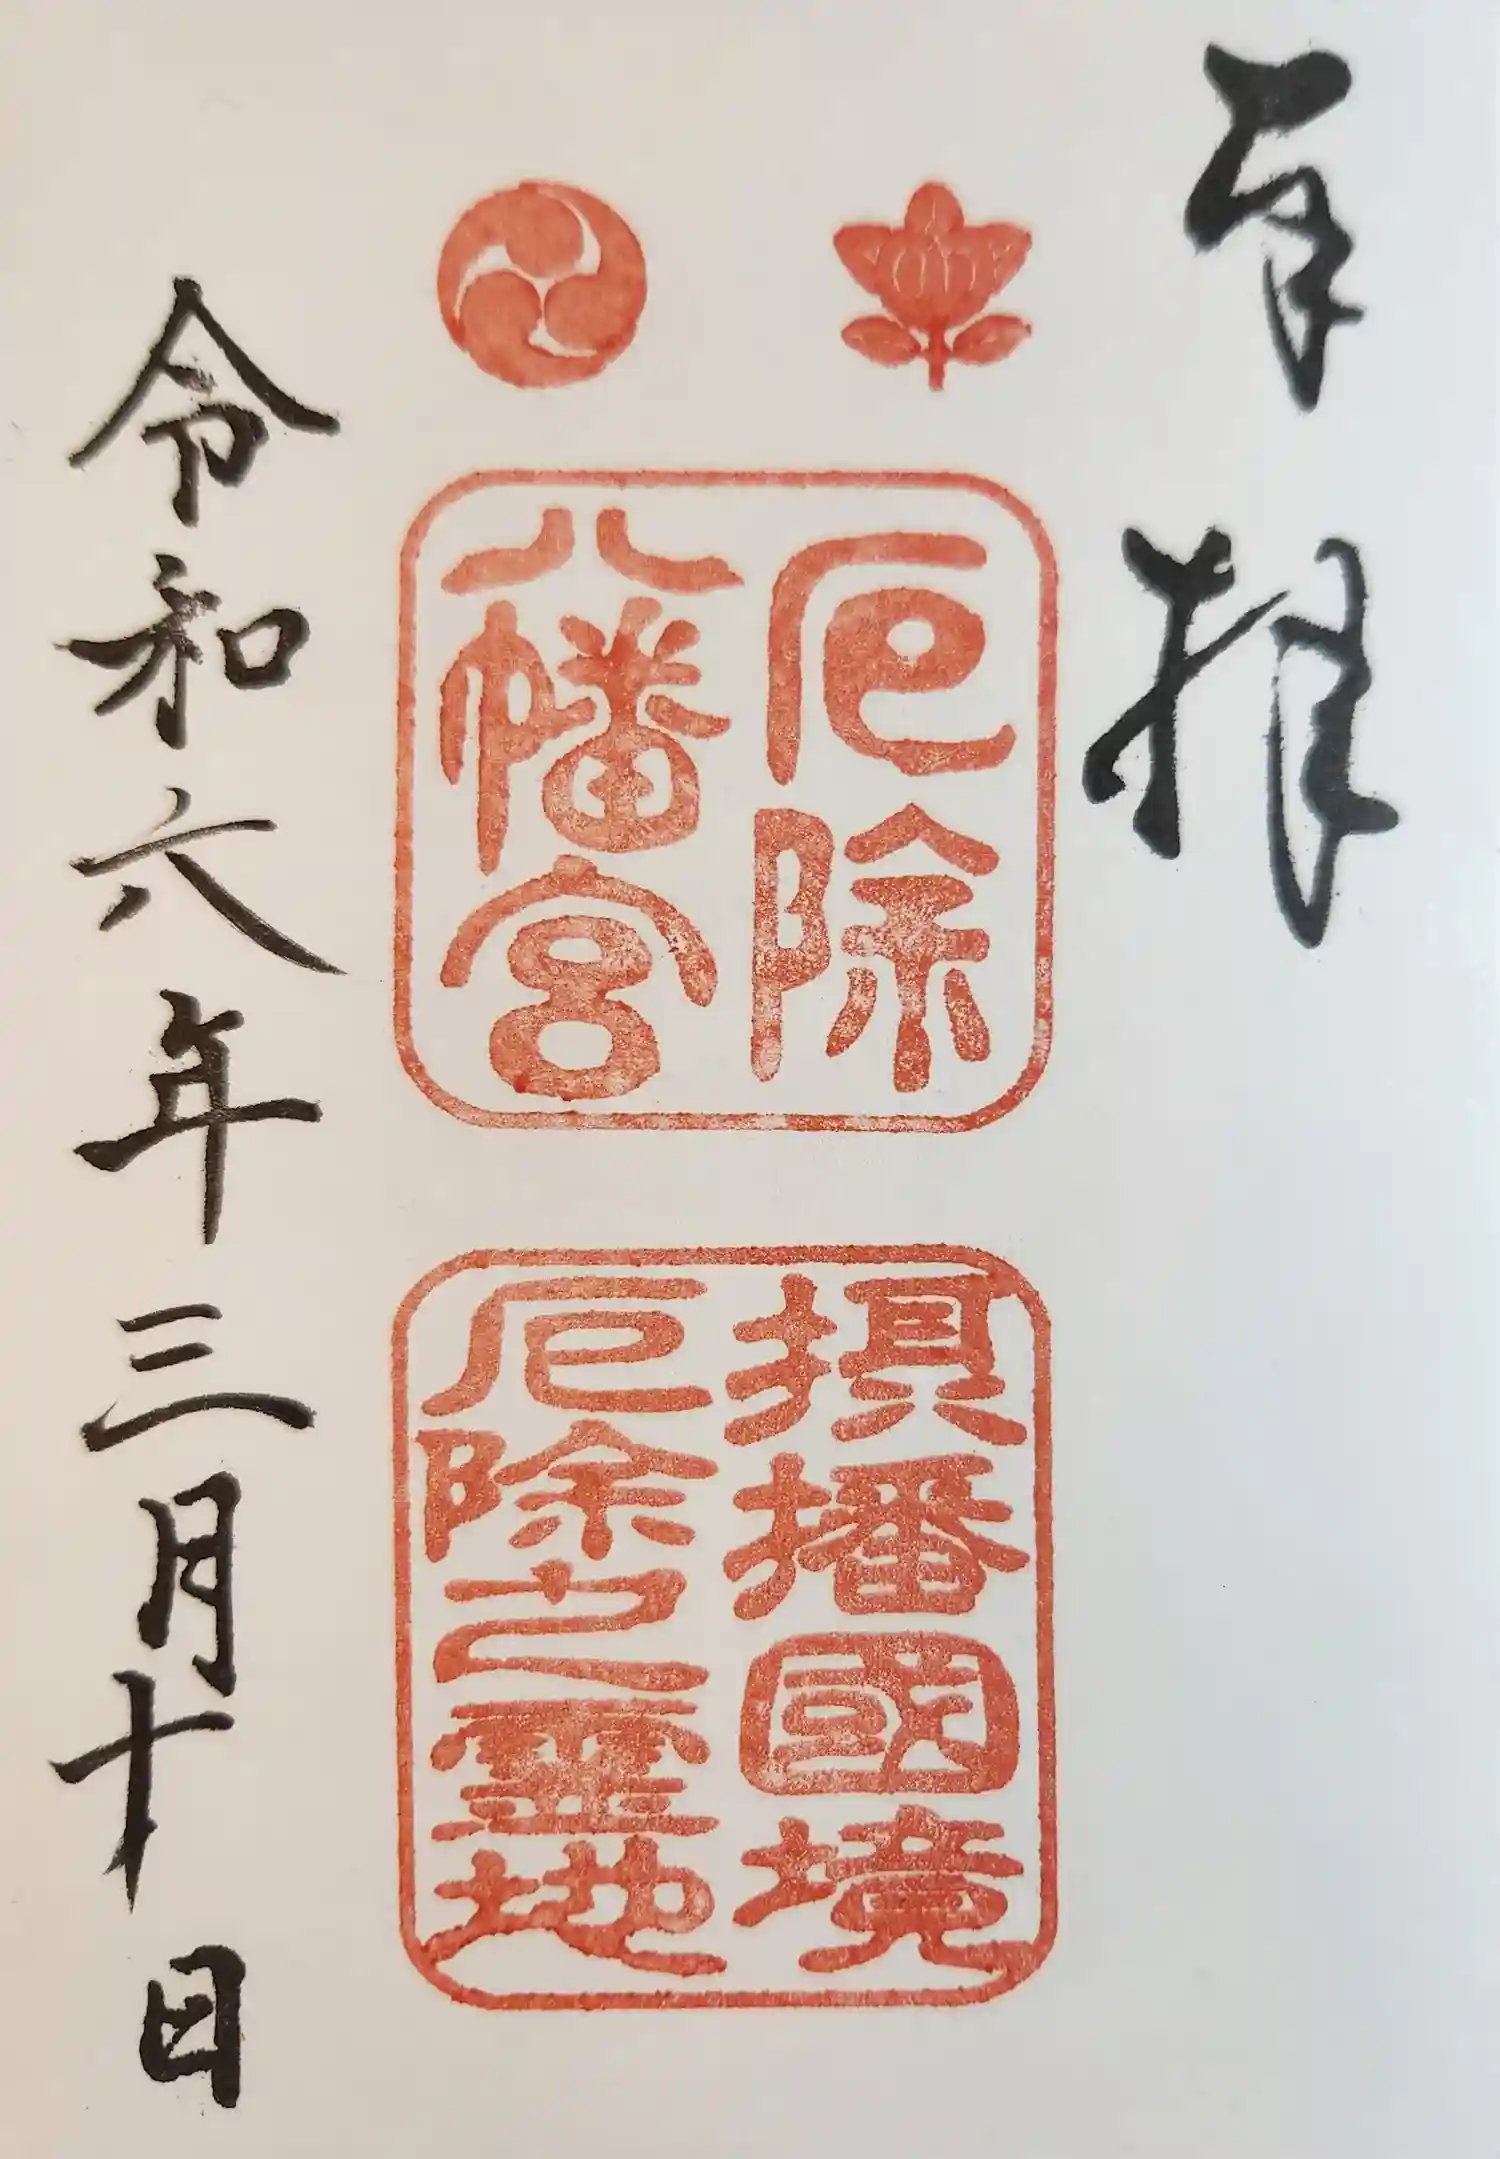 奉拝
厄除
八幡宮
摂播國境
厄除之霊地
令和六年三月十日